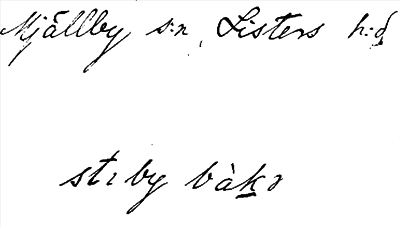 Mjällby s:n, Listers h:d
stıby bàkə